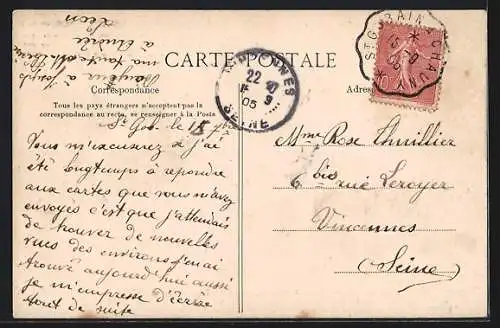 CARTE POSTALE
Correspondance
Tous les pays étrangers n'acceptent pas la
correspondance au recto, se renseigner à la Poste
Adres
VINCENNES
22
9
05
SEINE
ST-GOBAIN A CHAUNY
St Gob. le 18
Vous m'excuserez si j'ai
été longtemps à répondre
aux cartes que vous m'avez
envoyés c'est que j'attendais
de trouver de nouvelles
vues des environs j'en ai
trouvé aujourd'hui aussi
je m'empresse d'écrire
tout de suite
à André
Léon
Mme Rose Thuillier
6 bis rue Leroyer
Vincennes
(Seine)